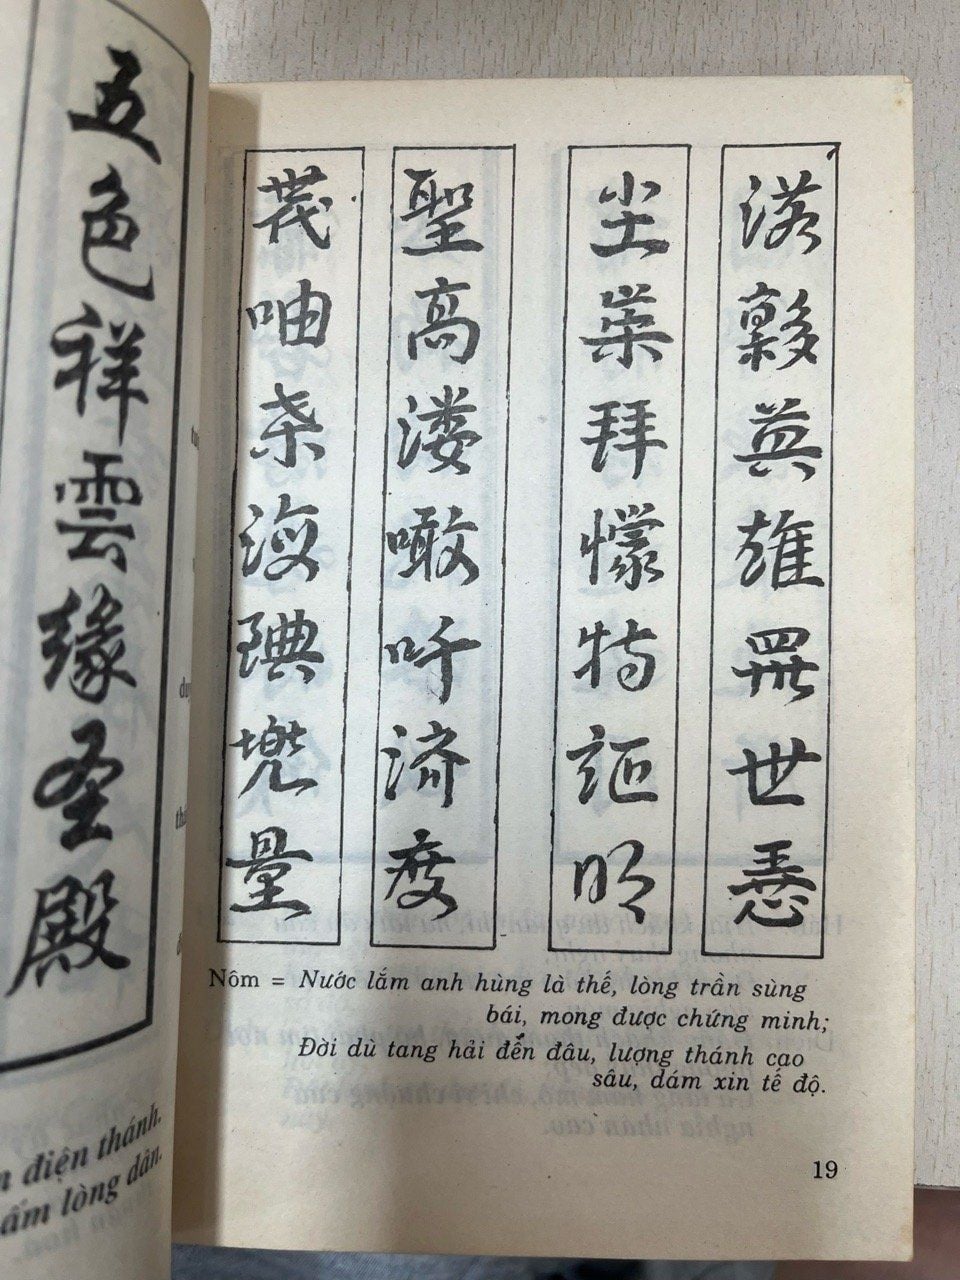 五色祥雲緣圣殿
n điện thánh.
ấm lòng dân.
渃𡗋英雄世𢚸
尘崇拜懞特証明
𠁀桒海量
聖高漊噉吀濟度
Nôm = Nước lắm anh hùng là thế, lòng trần sùng
bái, mong được chứng minh;
Đời dù tang hải đến đâu, lượng thánh cao
sâu, dám xin tế độ.
19